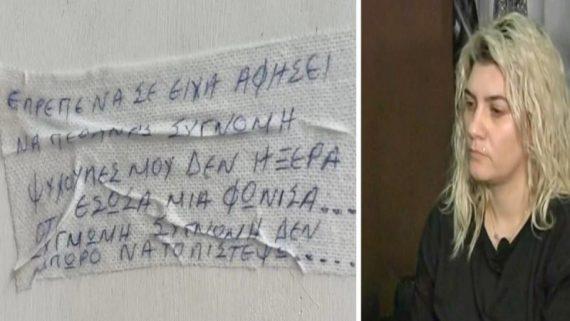 ΕΠΡΕΠΕ ΝΑ ΣΕ ΕΙΧΑ ΑΦΗΣΕΙ
ΝΑ ΠΕΘΑΝΕΙΣ ΣΥΓΝΟΜΗ
ΨΥΧΟΥΛΕΣ ΜΟΥ ΔΕΝ ΗΞΕΡΑ
ΟΤΙ ΕΣΩΣΑ ΜΙΑ ΦΩΝΙΣΑ....
ΣΥΓΜΩΜΗ ΣΥΓΝΩΜΗ ΔΕΝ
ΜΠΩΡΟ ΝΑ ΤΟ ΠΙΣΤΕΨΩ......